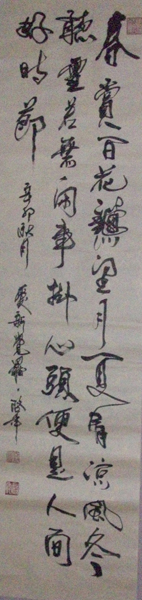 春賞百花龝望月夏有涼風冬
聽雪若無閑事掛心頭便是人間
好時節
辛卯秋月
愛新覺羅